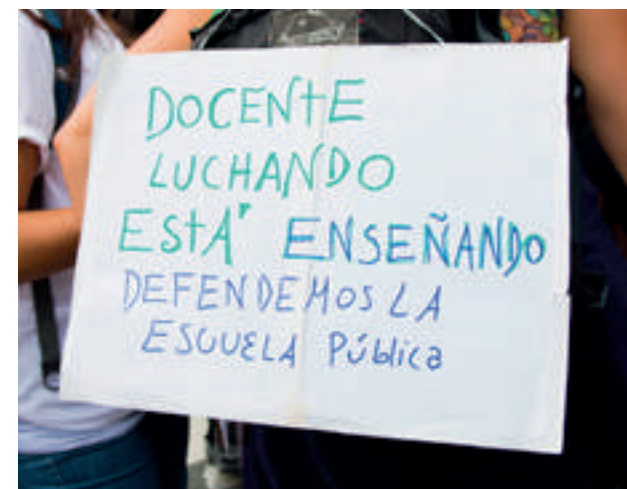 DOCENTE
LUCHANDO
ESTÁ ENSEÑANDO
DEFENDEMOS LA
ESCUELA Pública